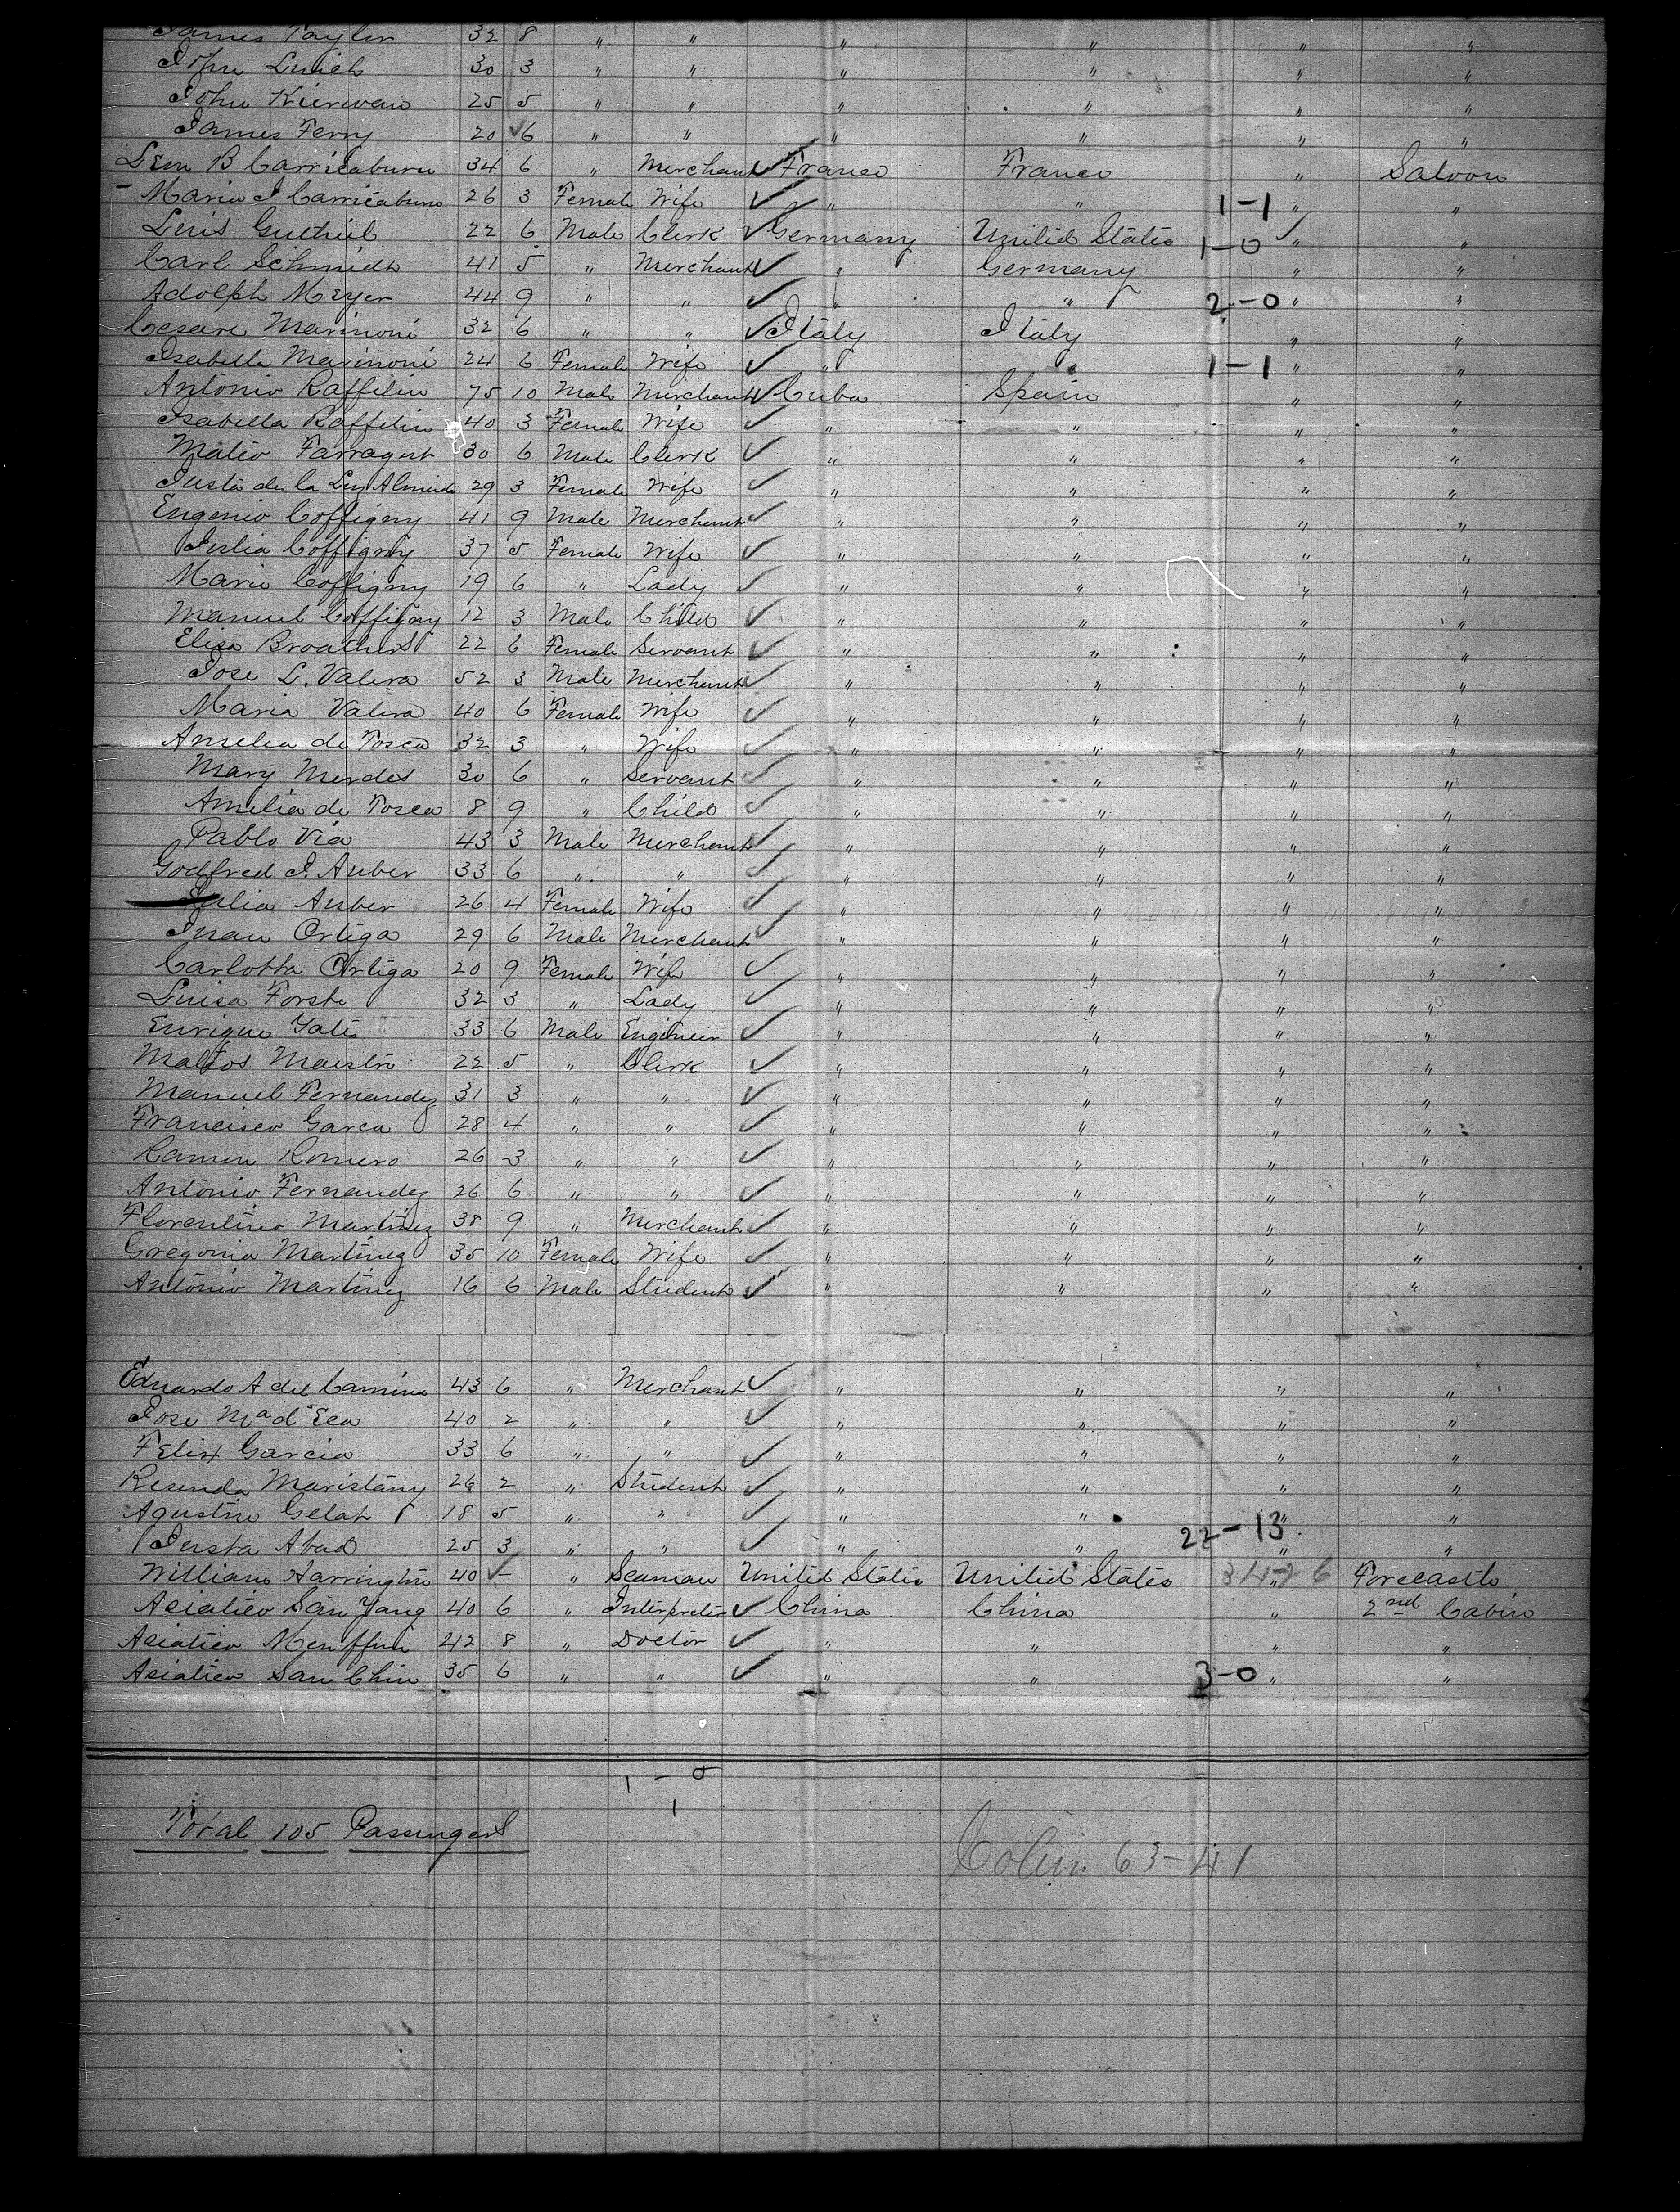 James Taylor 32 8 " " " " " "
John Linich 30 3 " " " " " "
John Kierwan 25 5 " " " " " "
James Ferry 20 6 " " " " " "
Leon B Carricaburu 34 6 " Merchant France France " Saloon
Maria J Carricaburu 26 3 Female Wife " " 1-1 " "
Luis Guthiel 22 6 Male Clerk Germany United States 1-0 " "
Carl Schmidt 41 5 " Merchant " Germany " "
Adolph Meyer 44 9 " " " " 2-0 " "
Cesare Marinoni 32 6 " " Italy Italy " "
Isabella Marinoni 24 6 Female Wife " " 1-1 "
Antonio Raffelin 75 10 Male Merchant Cuba Spain " "
Isabella Raffelin 40 3 Female Wife " " " "
Mateo Farragut 30 6 Male Clerk " " " "
Justa de la Luz Almeida 29 3 Female Wife " " " "
Eugenio Coffigny 41 9 Male Merchant " " " "
Julia Coffigny 37 5 Female Wife " " " "
Marie Coffigny 19 6 " Lady " " " "
Manuel Coffigny 12 3 Male Child " " " "
Elisa Broathers 22 6 Female Servant " " " "
Jose L. Valera 52 3 Male Merchant " " " "
Maria Valera 40 6 Female Wife " " " "
Amelia de Tosca 32 3 " Wife " " " "
Mary Mendes 30 6 " Servant " " " "
Amelia de Tosca 8 9 " Child " " " "
Pablo Via 43 3 Male Merchant " " " "
Godfred J. Auber 33 6 " " " " " "
Julia Auber 26 4 Female Wife " " " "
Juan Ortiga 29 6 Male Merchant " " " "
Carlotta Ortiga 20 9 Female Wife " " " "
Luisa Forste 32 3 " Lady " " " "
Enrique Yates 33 6 Male Engineer " " " "
Maltos Maestri 22 5 " Clerk " " " "
Manuel Fernandez 31 3 " " " " " "
Francisco Garca 28 4 " " " " " "
Ramon Romero 26 3 " " " " " "
Antonio Fernandez 26 6 " " " " " "
Florentino Martinez 38 9 " Merchant " " " "
Gregoria Martinez 35 10 Female Wife " " " "
Antonio Martinez 16 6 Male Student " " " "
Eduardo A del Camino 43 6 " Merchant " " " "
Jose Ma d'Eca 40 2 " " " " " "
Felix Garcia 33 6 " " " " " "
Resenda Maristany 26 2 " Student " " " "
Agustin Gelat 18 5 " " " " " "
Justa Abad 25 3 " " " " 22-13 "
William Harrington 40 - " Seaman United States United States " Forecastle
Asiatico San Yang 40 6 " Interpreter China China " 2nd Cabin
Asiatico Men ffun 42 8 " Doctor " " " "
Asiatico San Chin 35 6 " " " " 3-0 " "
1 - 0
1
Total 105 Passengers
63-41